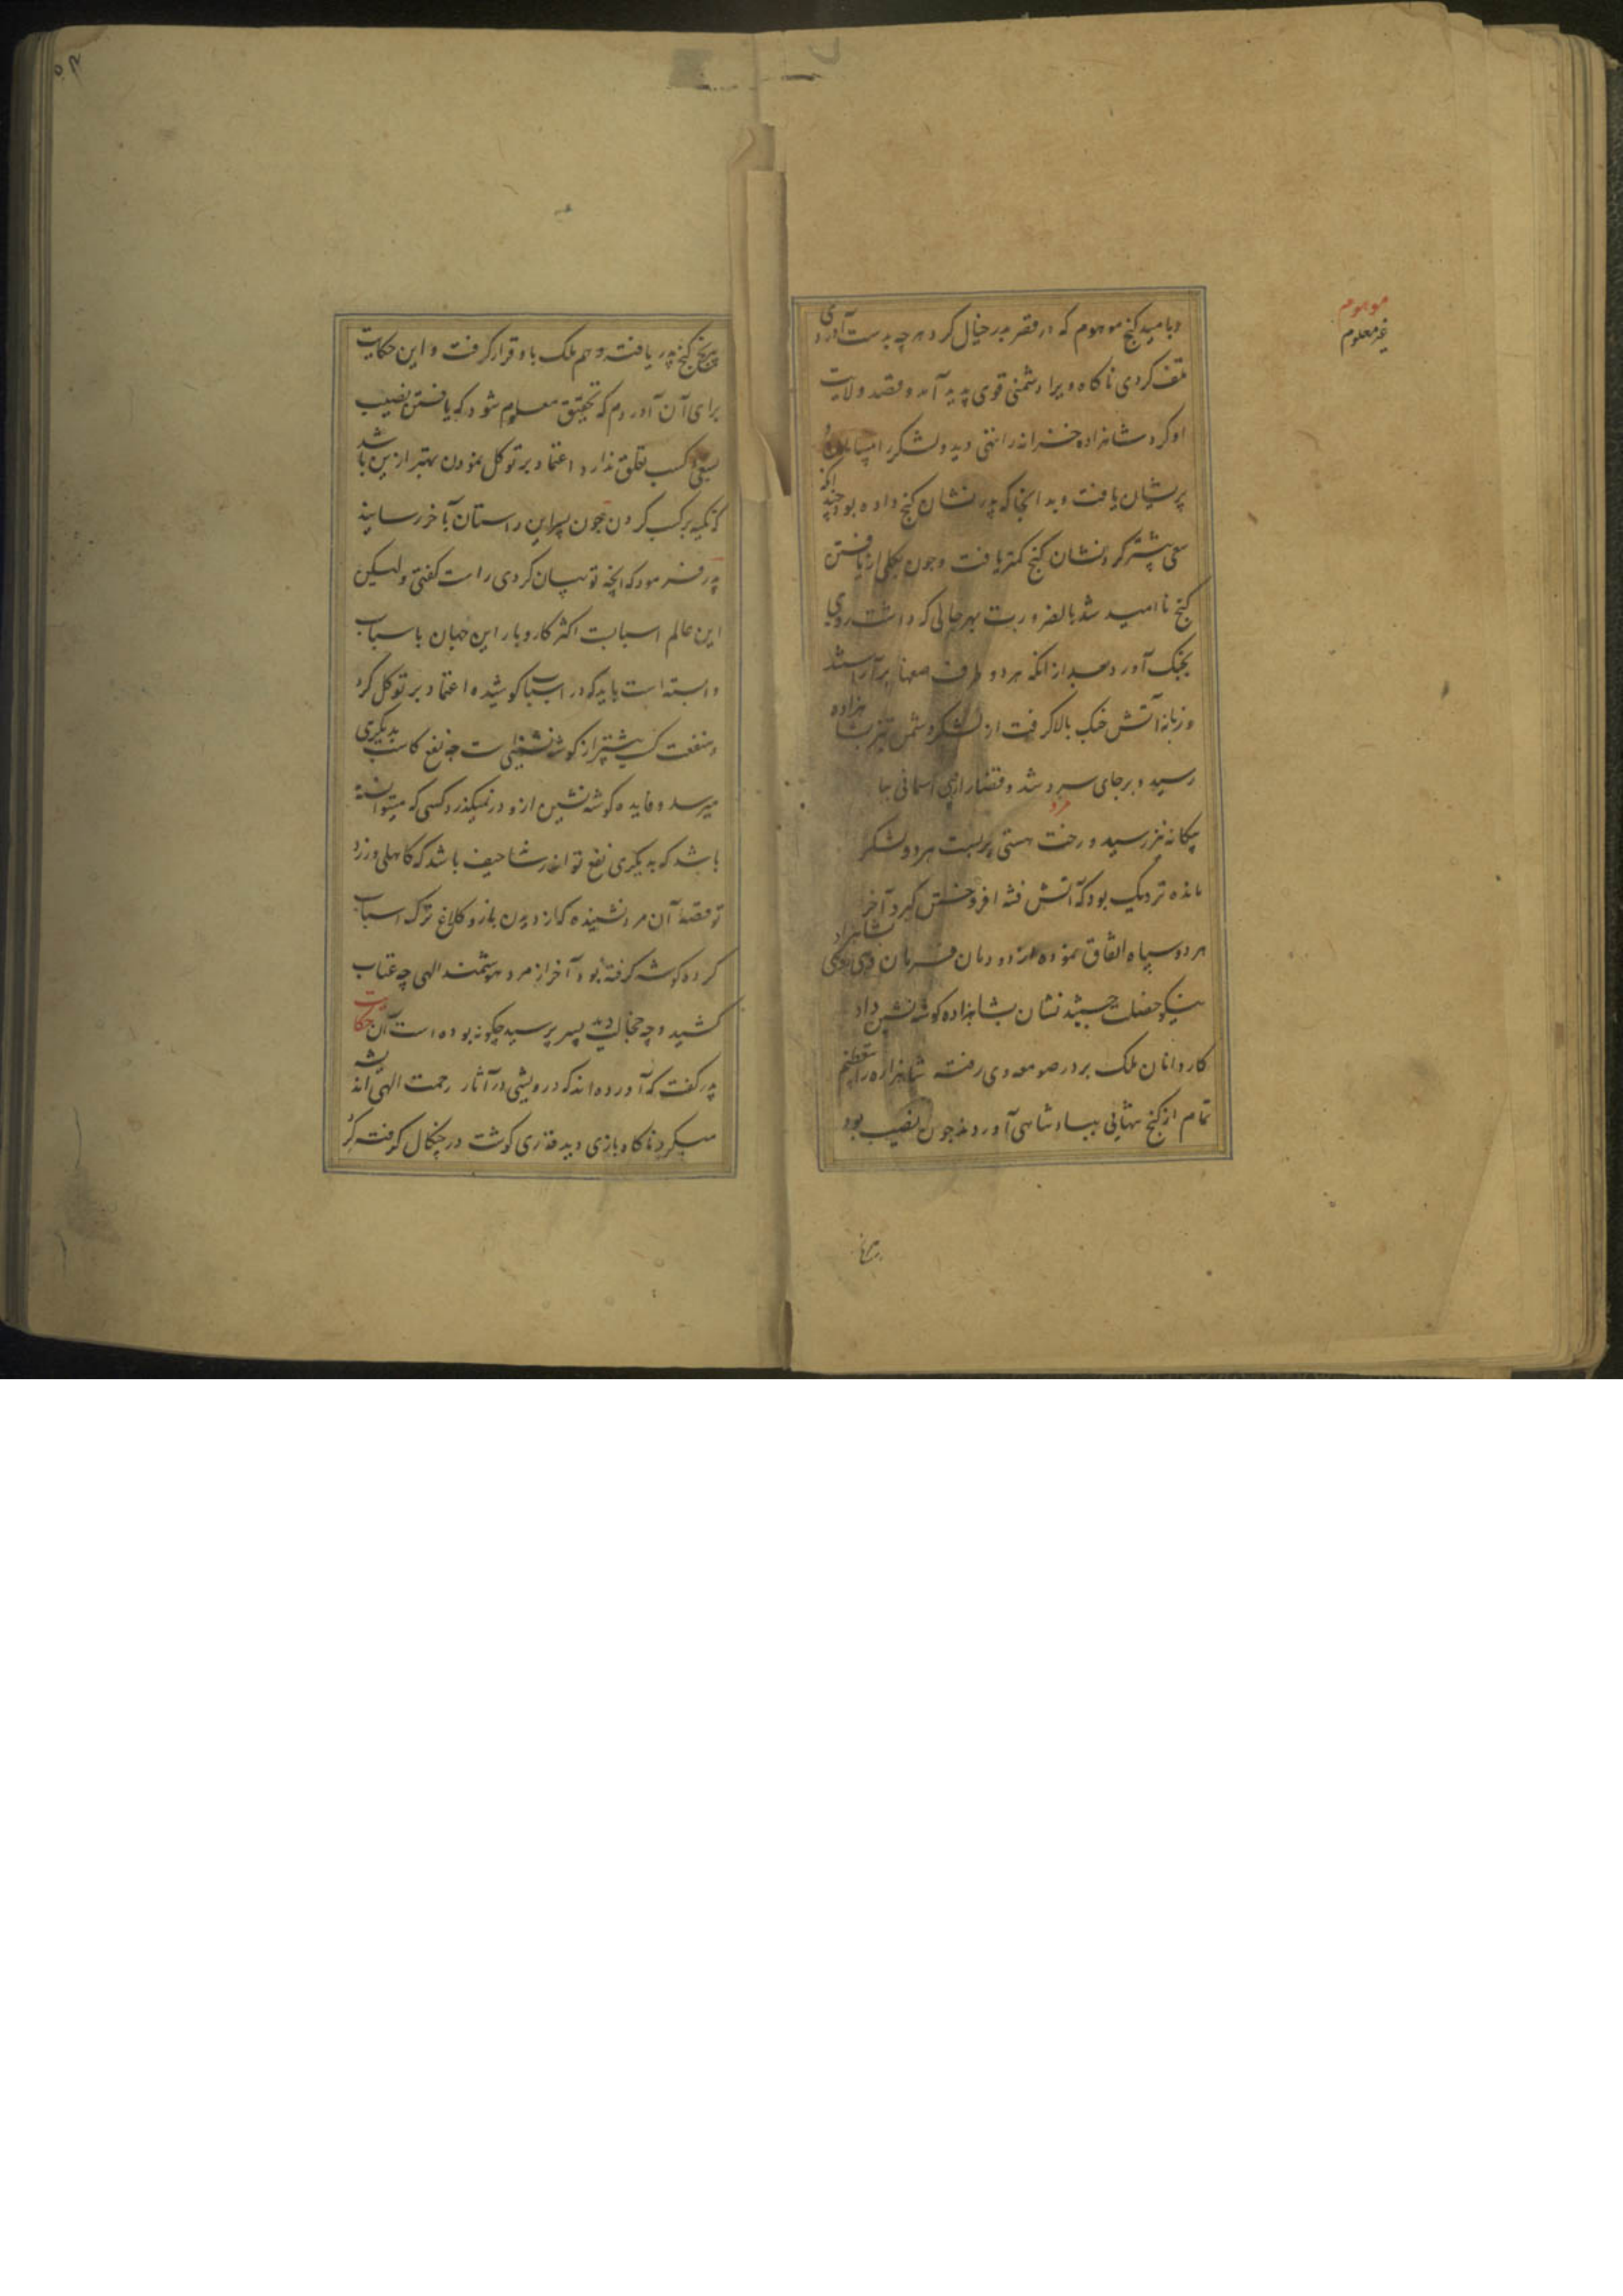 و بامید کنج موهوم که در قصر پدر خیال کرد هر چه بدست آوردی
تلف کردی ناکاه ویرا دشمنی قوی پدید آمد و قصد ولایت
او کرد شاهزاده خزانه را تهی دید و لشکر را
پریشان یافت و بدانجا که پدر نشان کنج داده بود چندانکه
سعی بیشتر کرد نشان کنج کمتر یافت و چون بکلی از یافتن
کنج ناامید شد بالضرورت بهر حالی که داشت روی
بجنک آورد بعد از انکه هر دو طرف صفها برآراستند
و زبانه آتش جنک بالا گرفت از لشکر دشمن تیر بشاهزاده
رسید و بر جای سرد شد و قضا را از اسمانی
بیکانه نیز رسید و رخت هستی بربست هر دو لشکر
مانده نزدیک بود که آتش فتنه افروختن گیرد آخر
هر دو سپاه اتفاق نموده از دودمان فرمان دهی
نیکو خصلت جستند نشان بشاهزاده کوشه نشین داد
کاردانان ملک بر در صومعه وی رفته شاهزاده را بتعظیم
تمام از کنج تنهایی ببادشاهی آوردند چون نصیب بود
موهوم
غیر معلوم
برنج
برنج کنج پدر یافت و هم ملک باو قرار گرفت و این حکایت
برای آن آوردم که تحقیق معلوم شود که یافتن نصیب
بسعی و کسب تعلق ندارد اعتماد بر توکل نمودن بهتر ازین باشد
که تکیه بر کسب کردن چون پسر این داستان بآخر رسانید
پدر فرمود که آنچه تو بیان کردی راست کفتی ولیکن
این عالم اسبابست اکثر کاروبار این جهان باسباب
وابسته است باید که در اسباب کوشیده اعتماد بر توکل کرد
و منفعت کسب بیشتر از کوشه نشینی ست چه نفع کاسب بدیگری
میرسد و فایده کوشه نشین ازو در نمیگذرد کسی که میتوانسته
باشد که بدیگری نفع تواند رساند حیف باشد که کاهلی ورزد
تو قصه آن مرد نشنیده که از دیدن باز و کلاغ ترک اسباب
کرده کوشه گرفته بود آخر از مرد هوشمند الهی چه عتاب
کشید و چه خجالت دید پسر پرسید چکونه بوده است آن حکایت
پدر کفت که آورده اند که درویشی در آثار رحمت الهی اندیشه
میکرد ناکاه بازی دید قدری کوشت در چنکال کرفته کرد